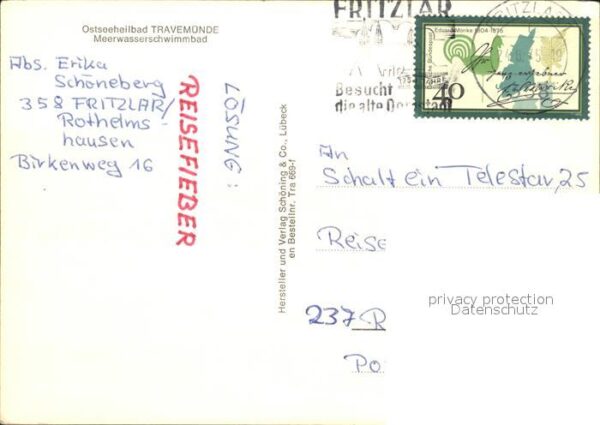 Ostseeheilbad TRAVEMÜNDE
Meerwasserschwimmbad
Abs. Erika
Schöneberg
358 FRITZLAR/
Rothelms-
hausen
Birkenweg 16
LÖSUNG:
REISEFIEBER
Hersteller und Verlag Schöning & Co., Lübeck
en Bestellnr. Tra 669-f
FRITZLAR
Besucht
die alte
FRITZLAR
Eduard Mörike 1804-1875
40
An
Schalt ein Telestar, 25
Reise
237 R
Po
privacy protection
Datenschutz